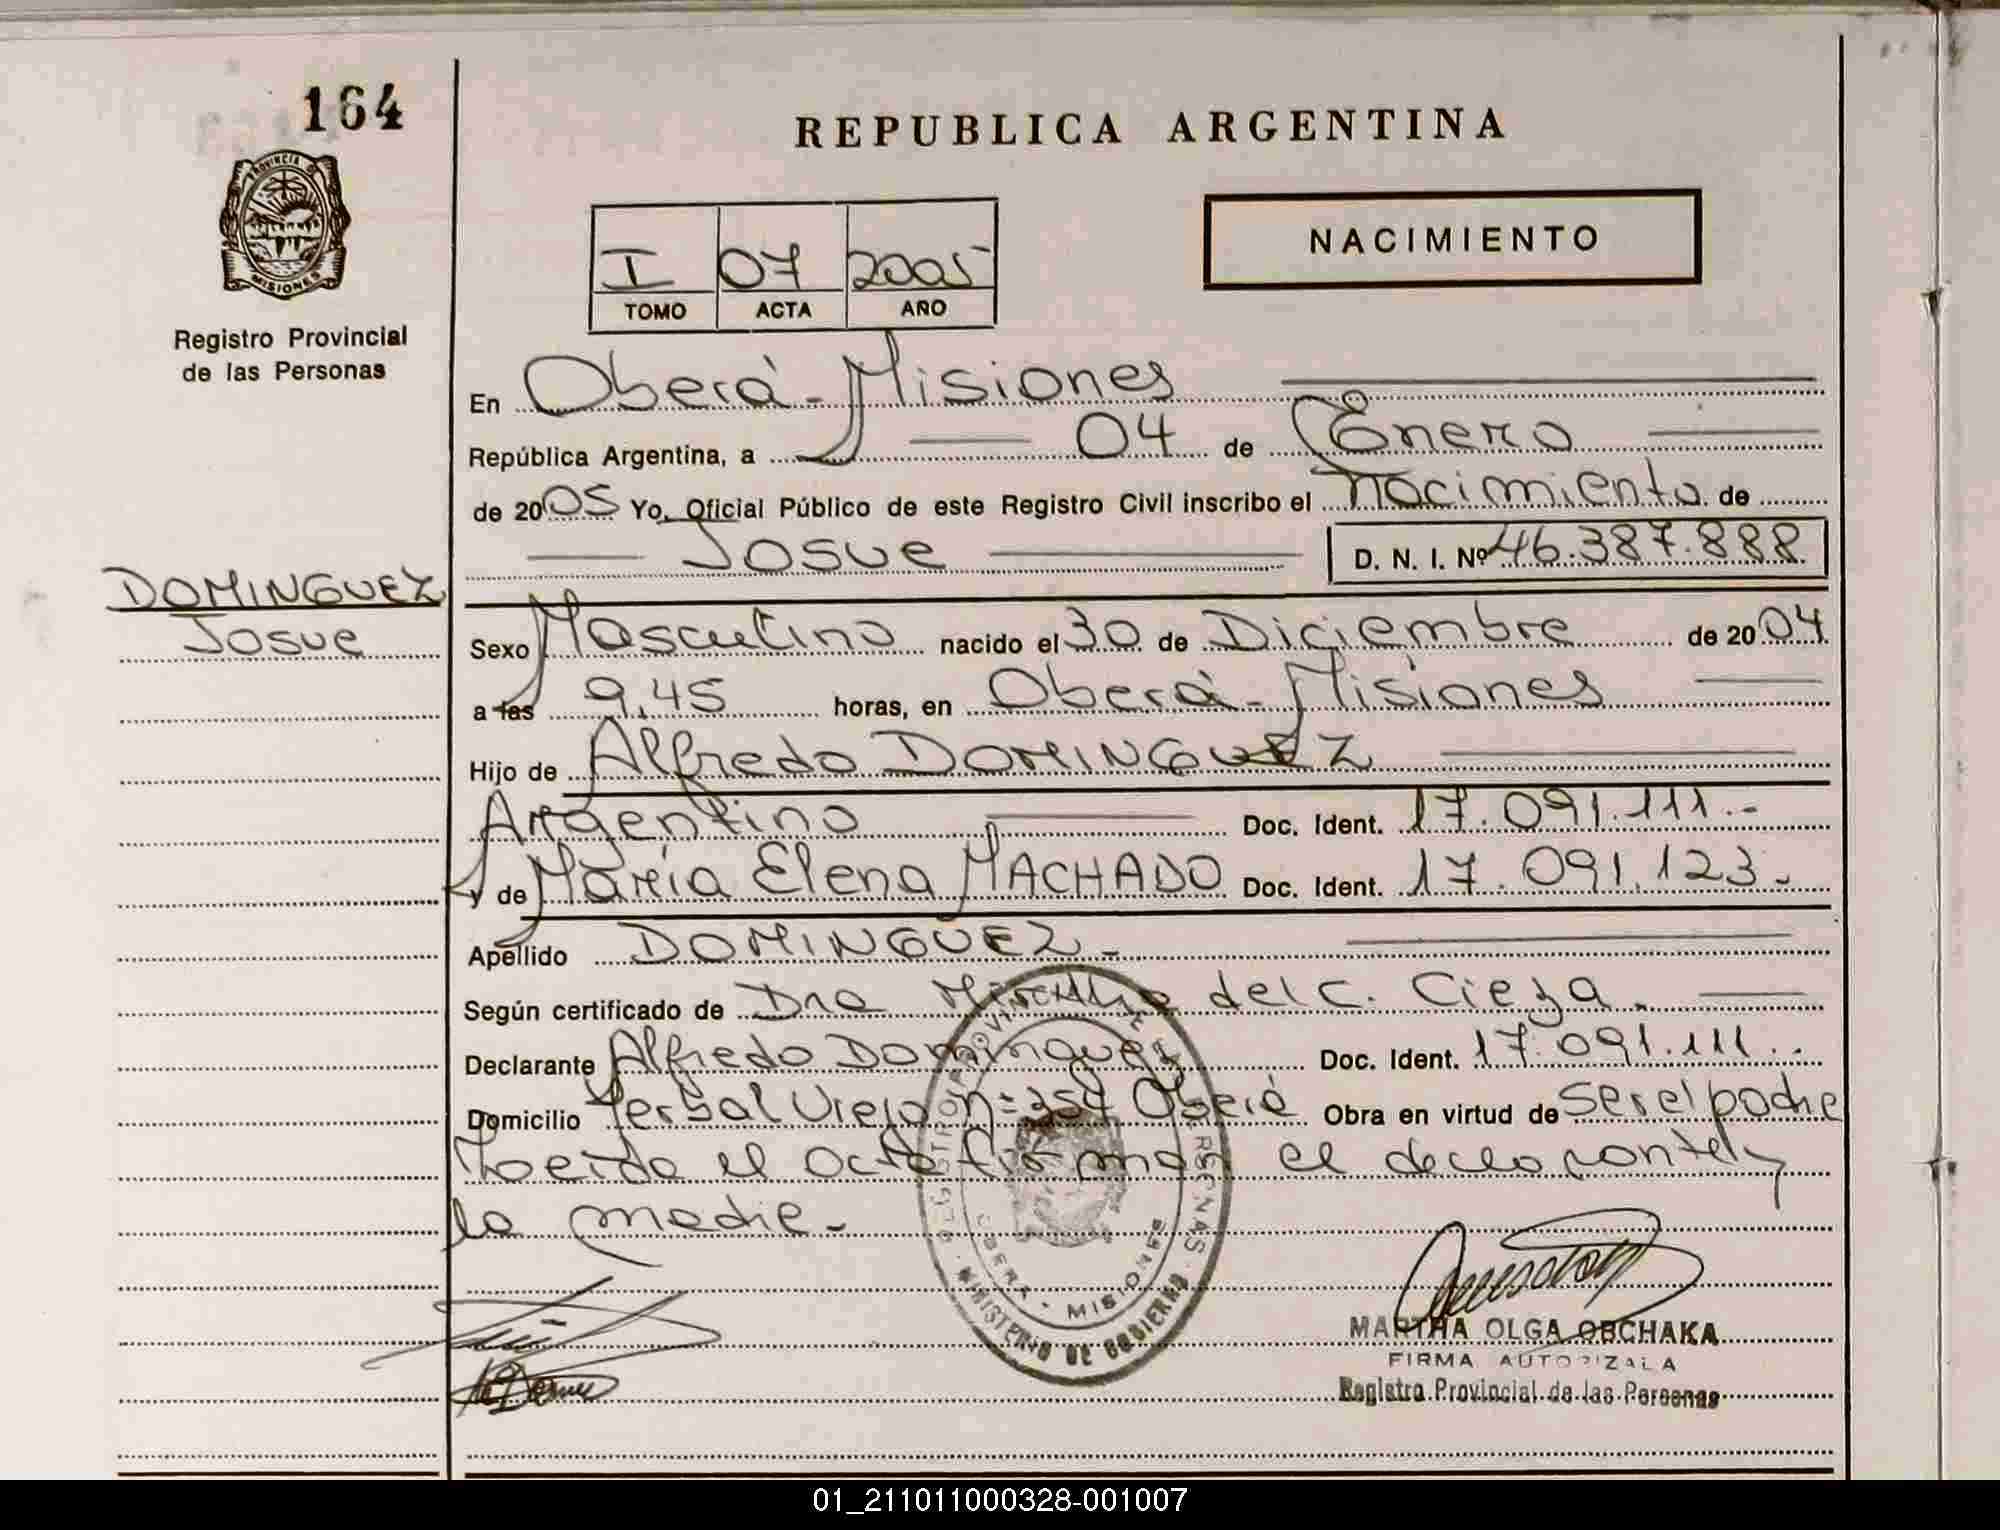 164
REPUBLICA ARGENTINA
PROVINCIA D
MISIONES
Registro Provincial
de las Personas
NACIMIENTO
I 07 2005
TOMO ACTA AÑO
En Oberá - Misiones
República Argentina, a 04 de Enero
de 2005 Yo, Oficial Público de este Registro Civil inscribo el nacimiento de
Josue D. N. I. Nº 46.387.888
DOMINGUEZ
Josue
Sexo Masculino nacido el 30 de Diciembre de 2004
a las 9,45 horas, en Oberá - Misiones
Hijo de Alfredo DOMINGUEZ
Argentino Doc. Ident. 17.091.111.-
y de María Elena MACHADO Doc. Ident. 17.091.123.-
Apellido DOMINGUEZ.-
Según certificado de Dra del C. Cieza.
Declarante Alfredo Dominguez Doc. Ident. 17.091.111.-
Domicilio Yerbal Viejo nº 254 Oberá Obra en virtud de ser el padre
Loeida el acta firman el declarante y
la madre.-
REGISTRO PROVINCIAL DE LAS PERSONAS
OBERA - MISIONES
MINISTERIO DE GOBIERNO
MARTHA OLGA OBCHAKA
FIRMA AUTORIZADA
Registro Provincial de las Personas
01_211011000328-001007